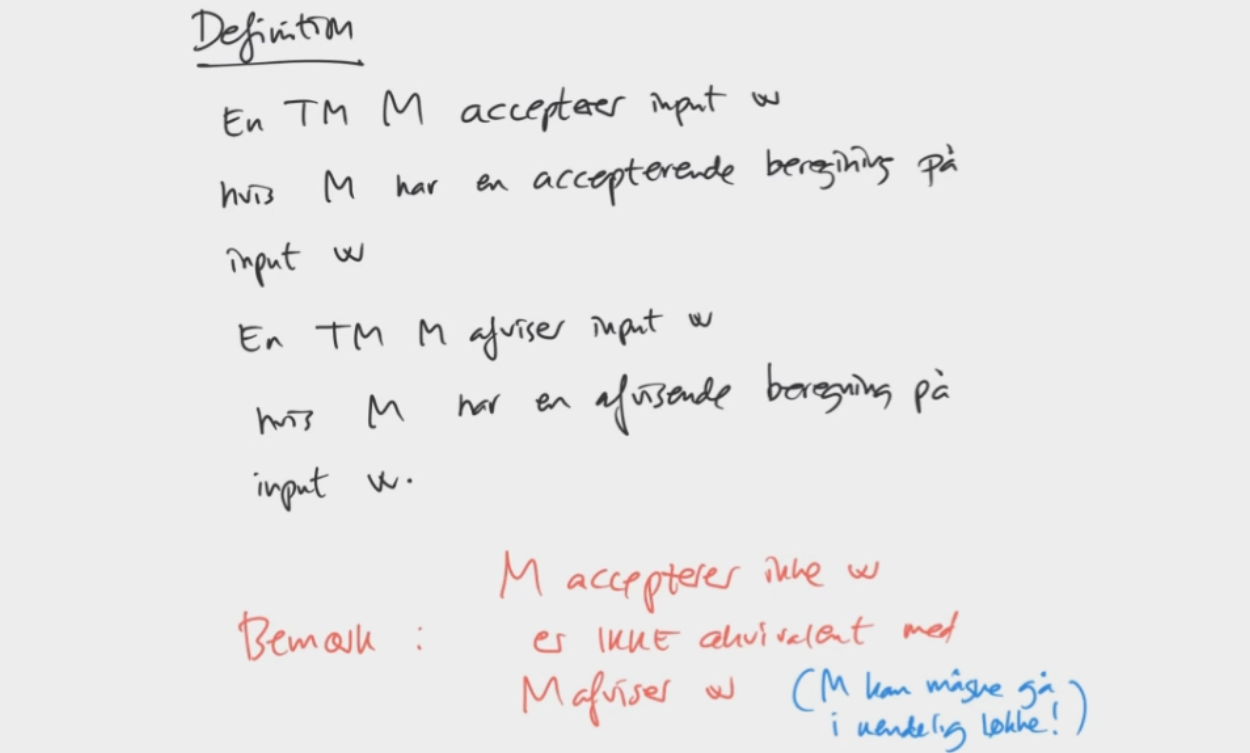 Definition
En TM M accepterer input w
hvis M har en accepterende beregning på
input w
En TM M afviser input w
hvis M har en afvisende beregning på
input w.
M accepterer ikke w
Bemærk : er IKKE ækvivalent med
M afviser w (M kan måske gå
i uendelig løkke!)